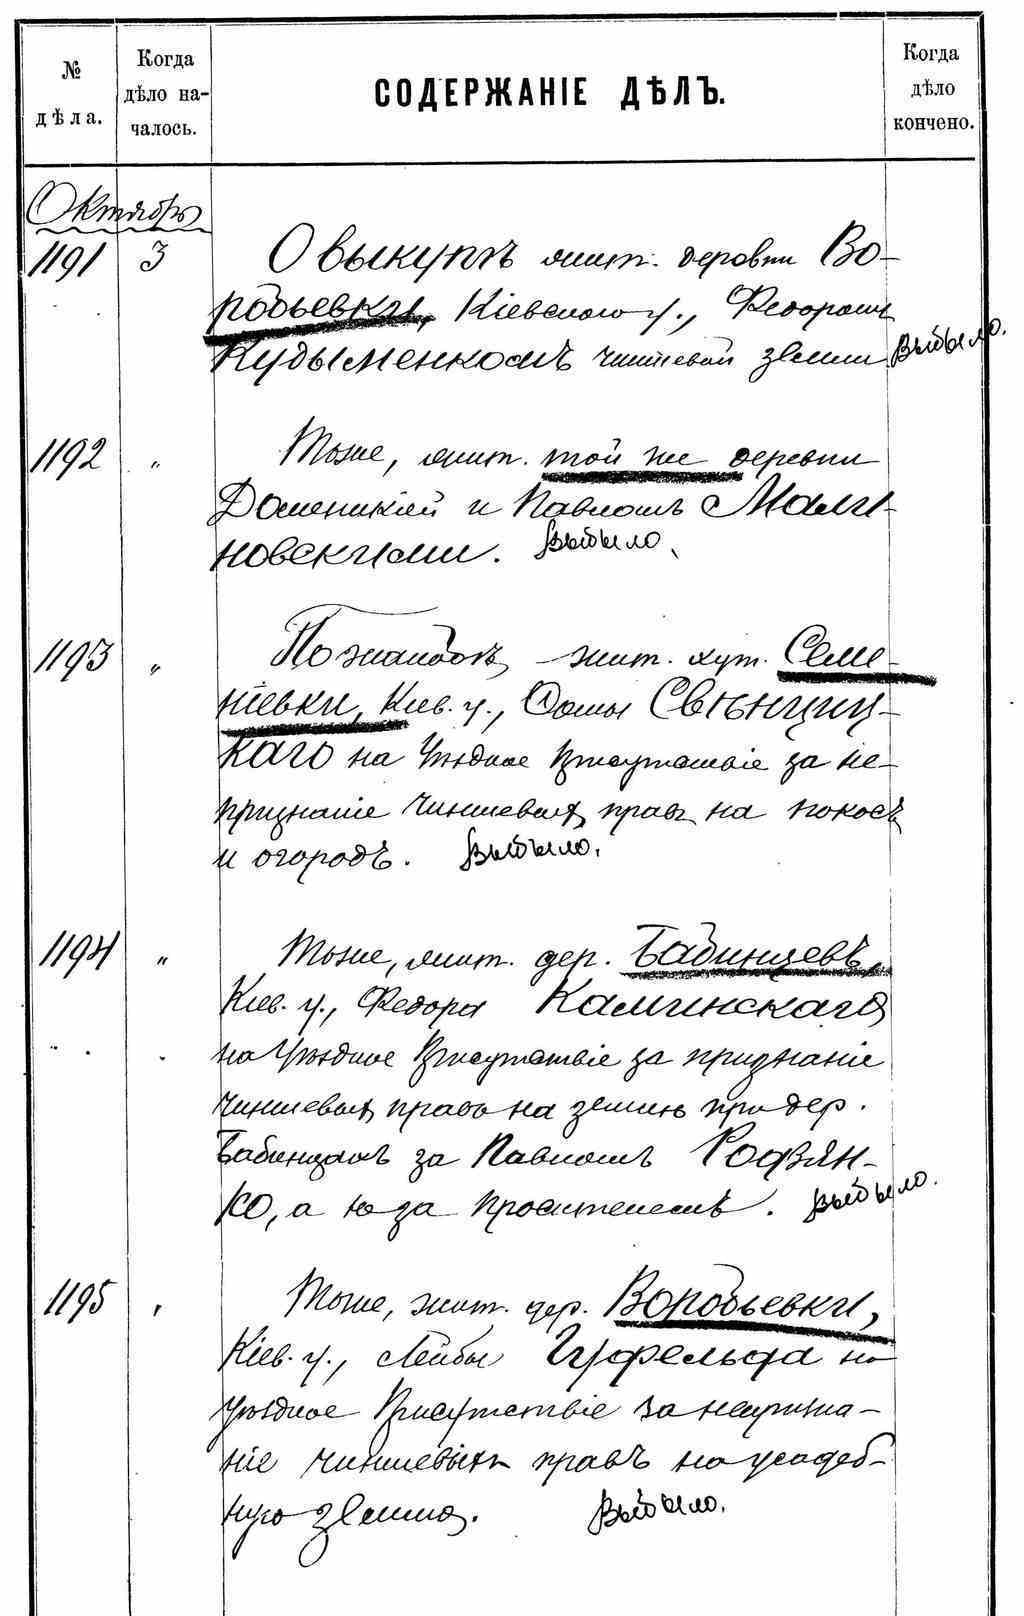 № дѣла.
Когда дѣло на-
чалось.
СОДЕРЖАНІЕ ДѢЛЪ.
Когда дѣло кончено.
Октябрь
1191 3 О выкупѣ жит. деревни Во-
робьевки, Кіевского у., Федоромъ
Кудыменкомъ чиншевой земли Выбыло.
1192 " Тоже, жит. той же деревни
Доменикіей и Павломъ Мали-
новскими. Выбыло.
1193 " По жалобѣ жит. хут. Семе-
ніевки, Кіев. у., Фомы Свѣнциц-
каго на Уѣздное Присутствіе за не-
признаніе чиншевыхъ правъ на покосъ
и огородъ. Выбыло.
1194 " Тоже, жит. дер. Бабинцевъ,
Кіев. у., Федора Калинскаго
на Уѣздное Присутствіе за признаніе
чиншевыхъ правъ на землю при дер.
Бабинцахъ за Павломъ Родзян-
ко, а не за просителемъ. Выбыло.
1195 " Тоже, жит. дер. Воробьевки,
Кіев. у., Лейбы Гурфельда на
Уѣздное Присутствіе за непризна-
ніе чиншевыхъ правъ на усадеб-
ную землю. Выбыло.